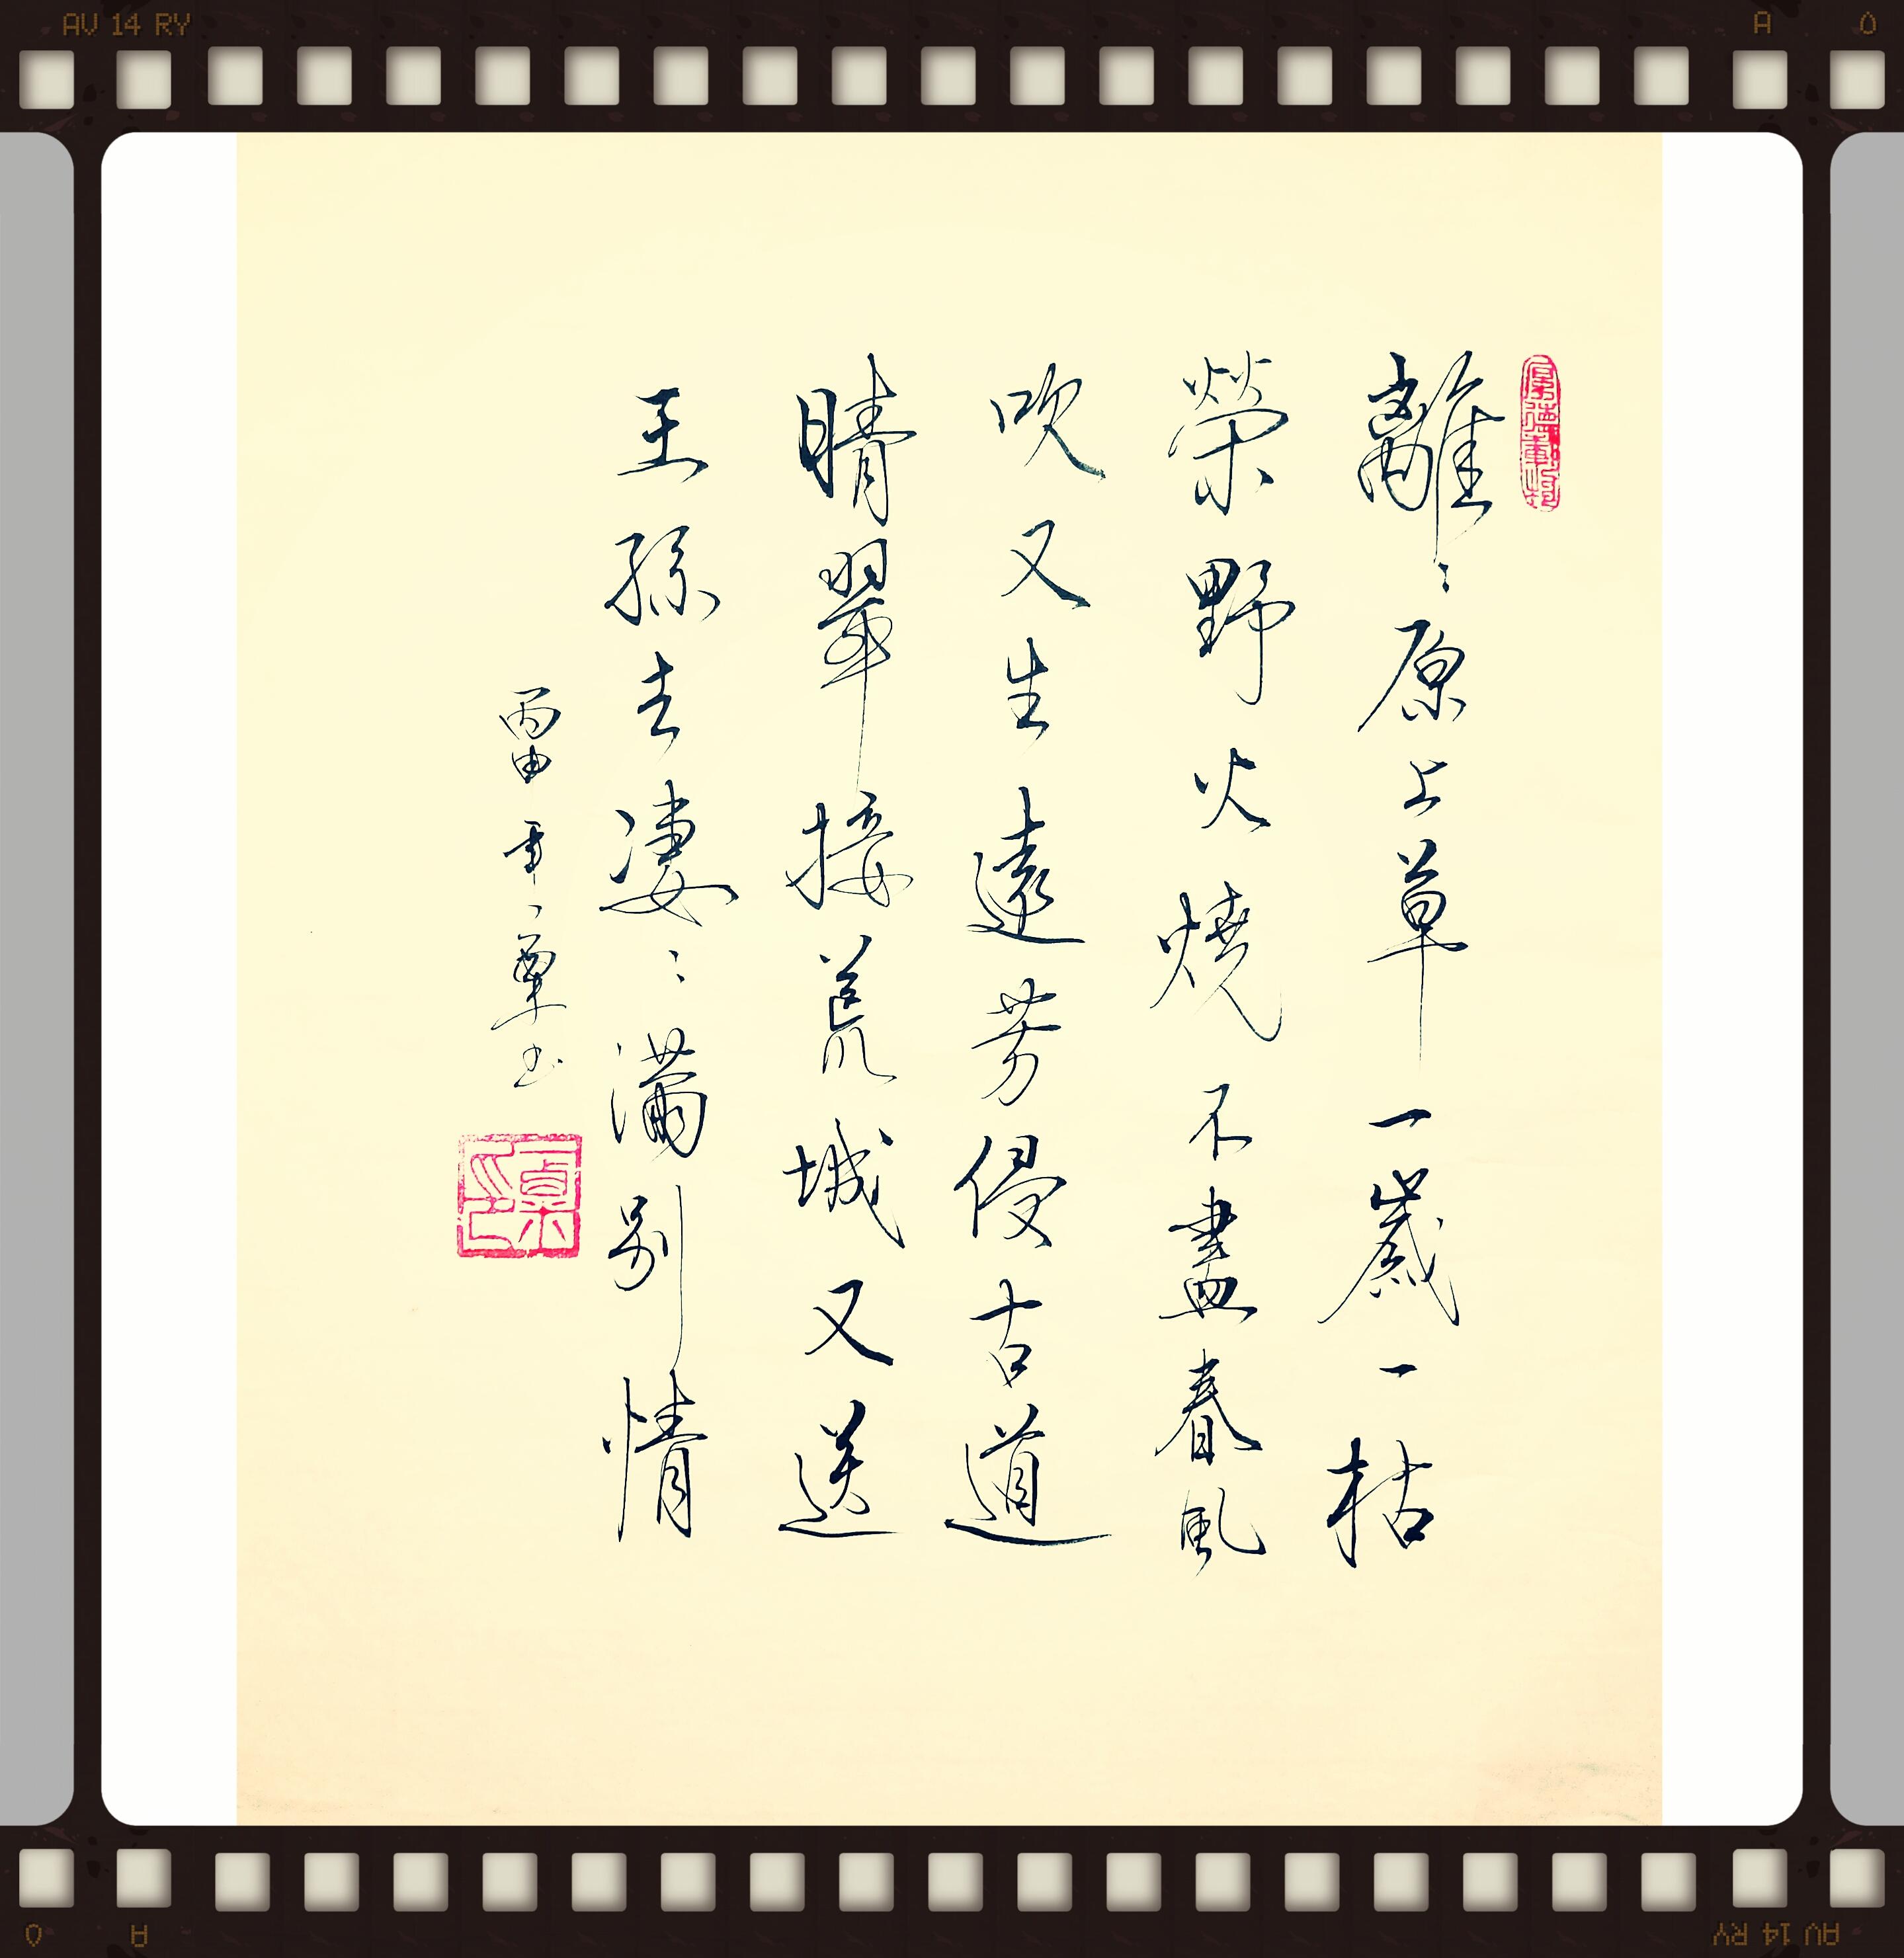 AV 14 RY
A
0
離〻原上草一歲一枯
榮野火燒不盡春風
吹又生遠芳侵古道
晴翠接荒城又送
王孫去淒〻滿別情
丙申年
0
A
AV 14 RY